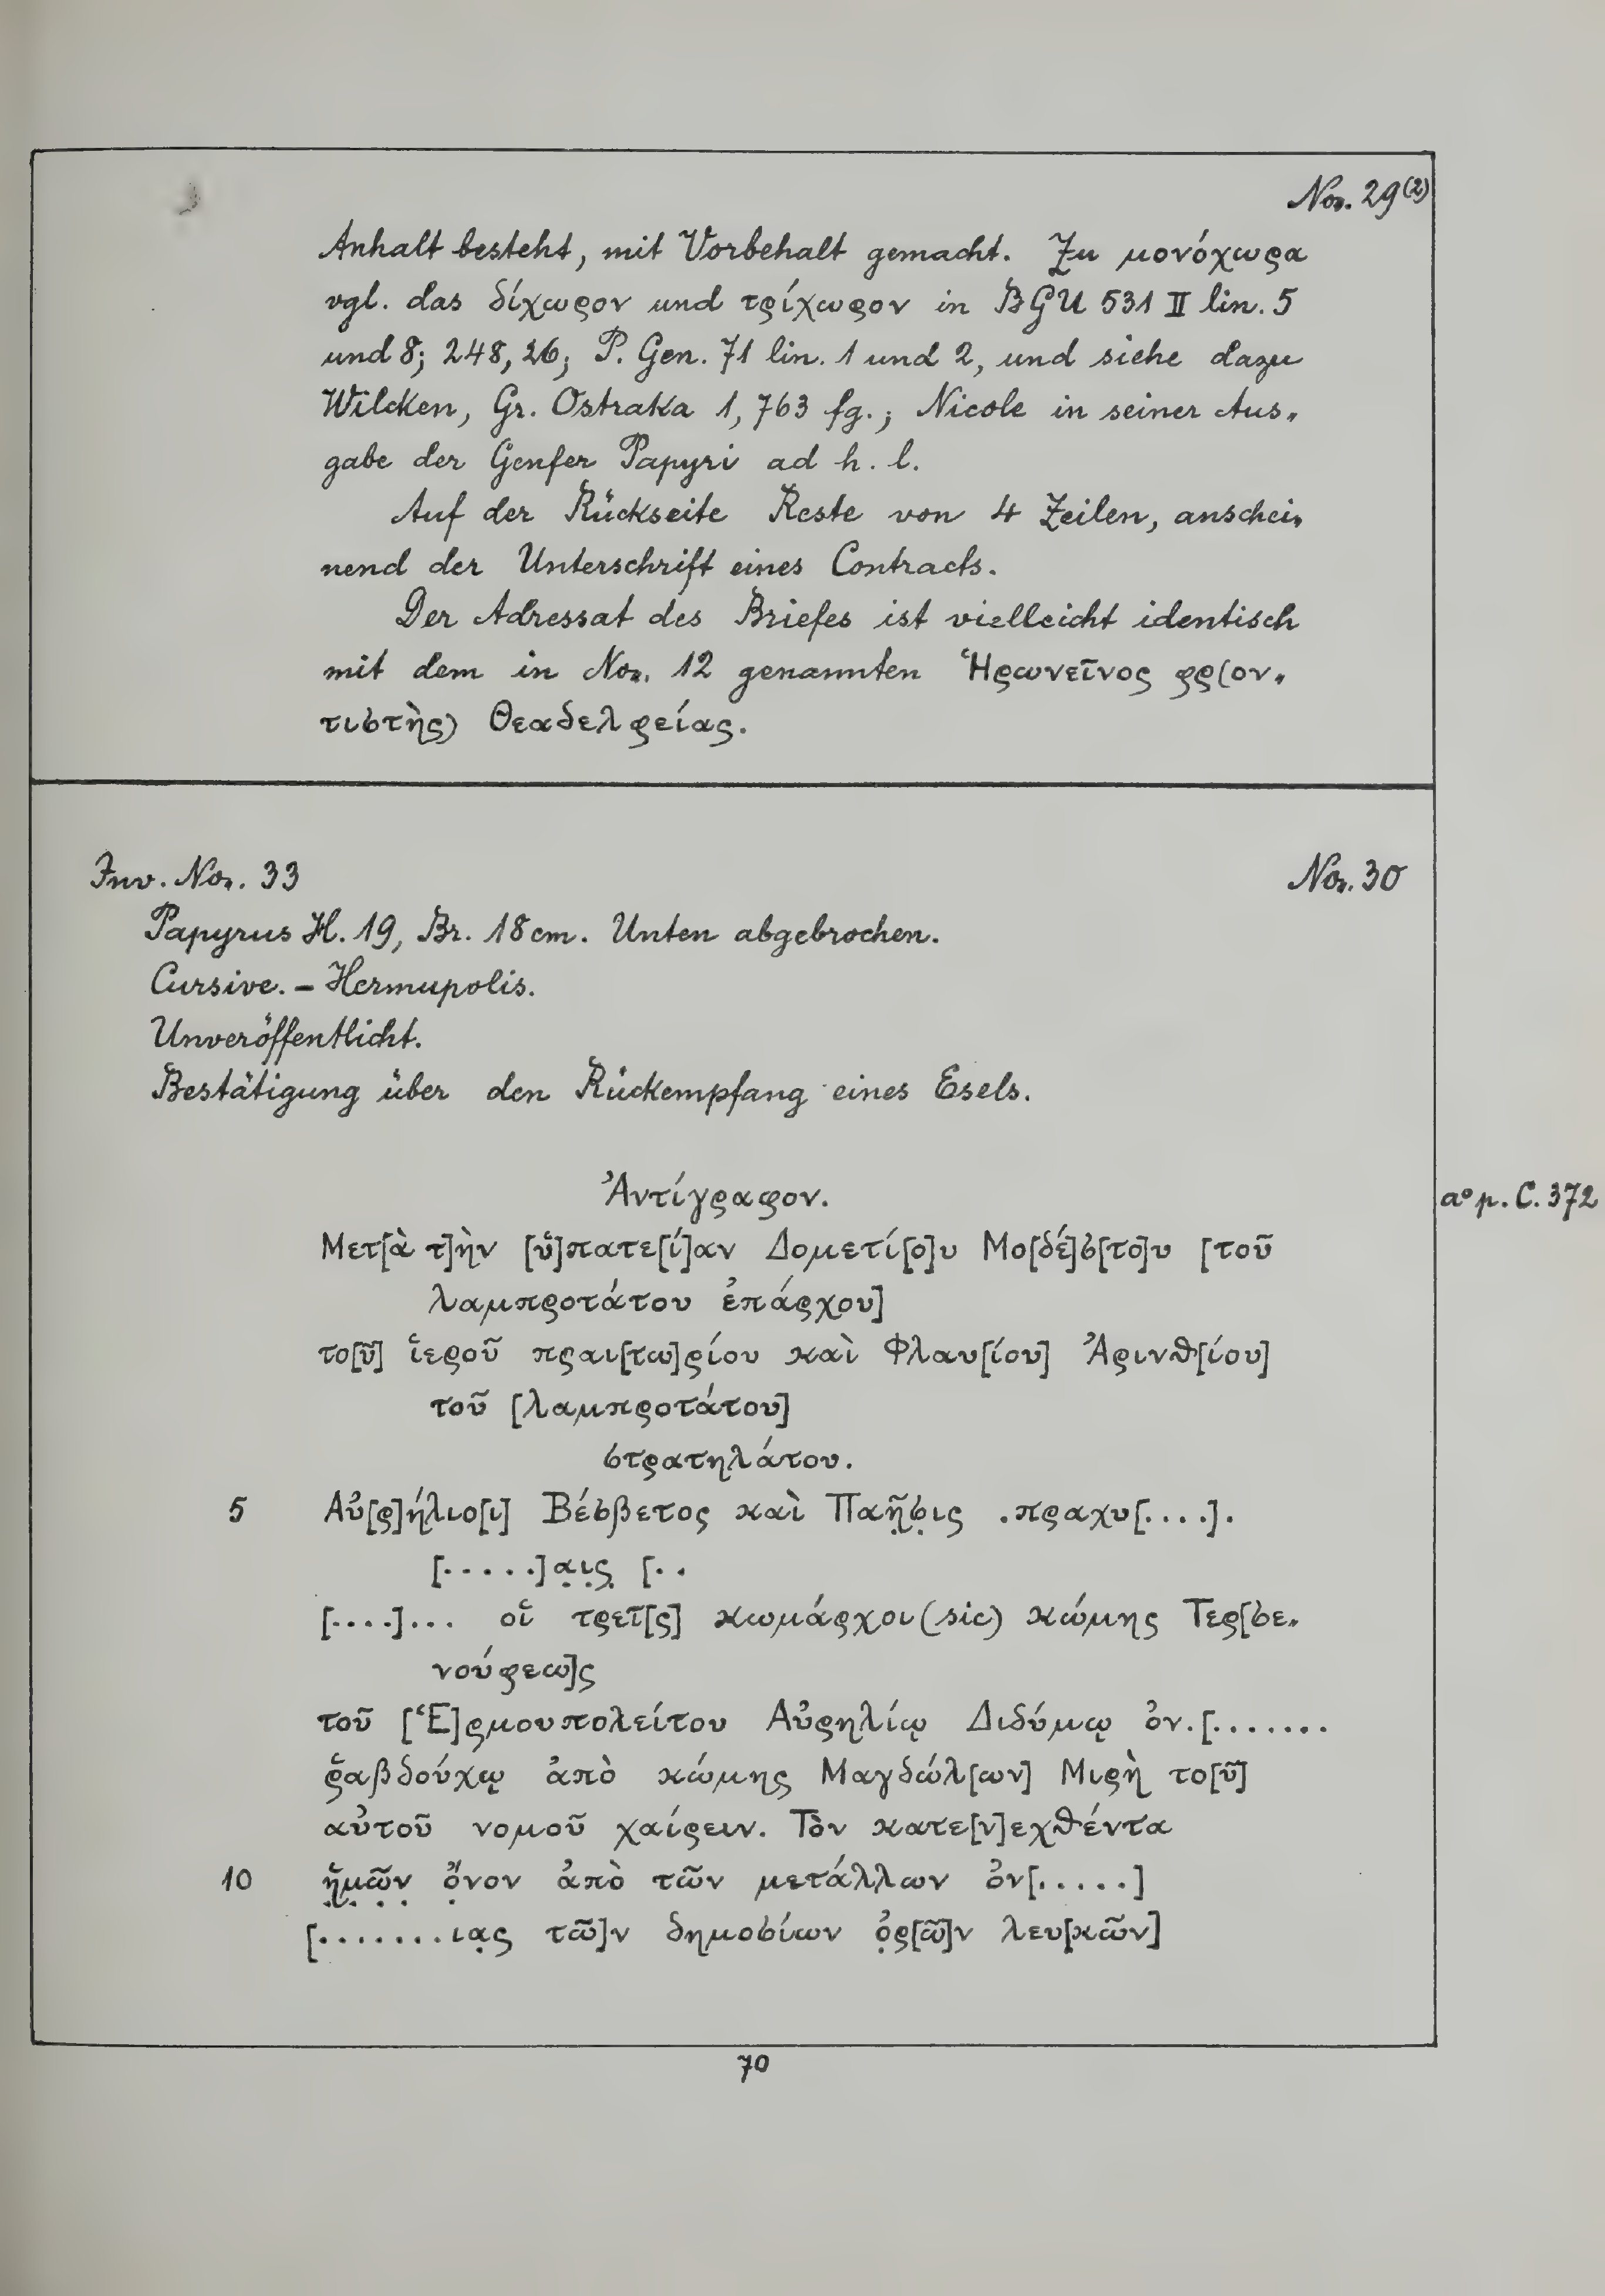 Nor. 29(2)
Anhalt besteht, mit Vorbehalt gemacht. Zu μονόχωρα
vgl. das δίχωρον und τρίχωρον in BGU 531 II lin. 5
und 8; 248, 26; P. Gen. 71 lin. 1 und 2, und siehe dazu
Wilcken, Gr. Ostraka 1, 763 fg.; Nicole in seiner Aus-
gabe der Genfer Papyri ad h. l.
Auf der Rückseite Reste von 4 Zeilen, anschei-
nend der Unterschrift eines Contracts.
Der Adressat des Briefes ist vielleicht identisch
mit dem in Nor. 12 genannten Ἡρωνεῖνος φρ(ον-
τιστὴς) Θεαδελφείας.
Inv. Nor. 33
Nor. 30
Papyrus H. 19, Br. 18 cm. Unten abgebrochen.
Cursive. – Hermupolis.
Unveröffentlicht.
Bestätigung über den Rückempfang eines Esels.
Ἀντίγραφον.
a° p. C. 372
Μετ[ὰ τ]ὴν [ὑ]πατε[ί]αν Δομετί[ο]υ Μο[δέ]σ[το]υ [τοῦ
λαμπροτάτου ἐπάρχου]
το[ῦ] ἱεροῦ πραι[τω]ρίου καὶ Φλαυ[ίου] Ἀρινθ[ίου]
τοῦ [λαμπροτάτου]
στρατηλάτου.
5 Αὐ[ρ]ήλιο[ι] Βέσβετος καὶ Παῆ̣σ̣ις .πραχυ[....].
[.....]α̣ι̣ς̣ [..
[....]... οἱ τρεῖ[ς] κωμάρχοι (sic) κώμης Τερ[σε-
νούφεω]ς
τοῦ [Ἑ]ρμουπολείτου Αὐρηλίῳ Διδύμῳ ὀν.[.......
ῥαβδούχῳ ἀπὸ κώμης Μαγδώλ[ων] Μιρὴ το[ῦ]
αὐτοῦ νομοῦ χαίρειν. Τὸν κατε[ν]εχθέντα
10 ἡ̣μ̣ῶ̣ν̣ ὄ̣νον ἀπὸ τῶν μετάλλων ὀν[.....]
[.......ια̣ς τῶ]ν δημοσίων ὀ̣ρ[ῶ]ν λευ[κῶν]
70